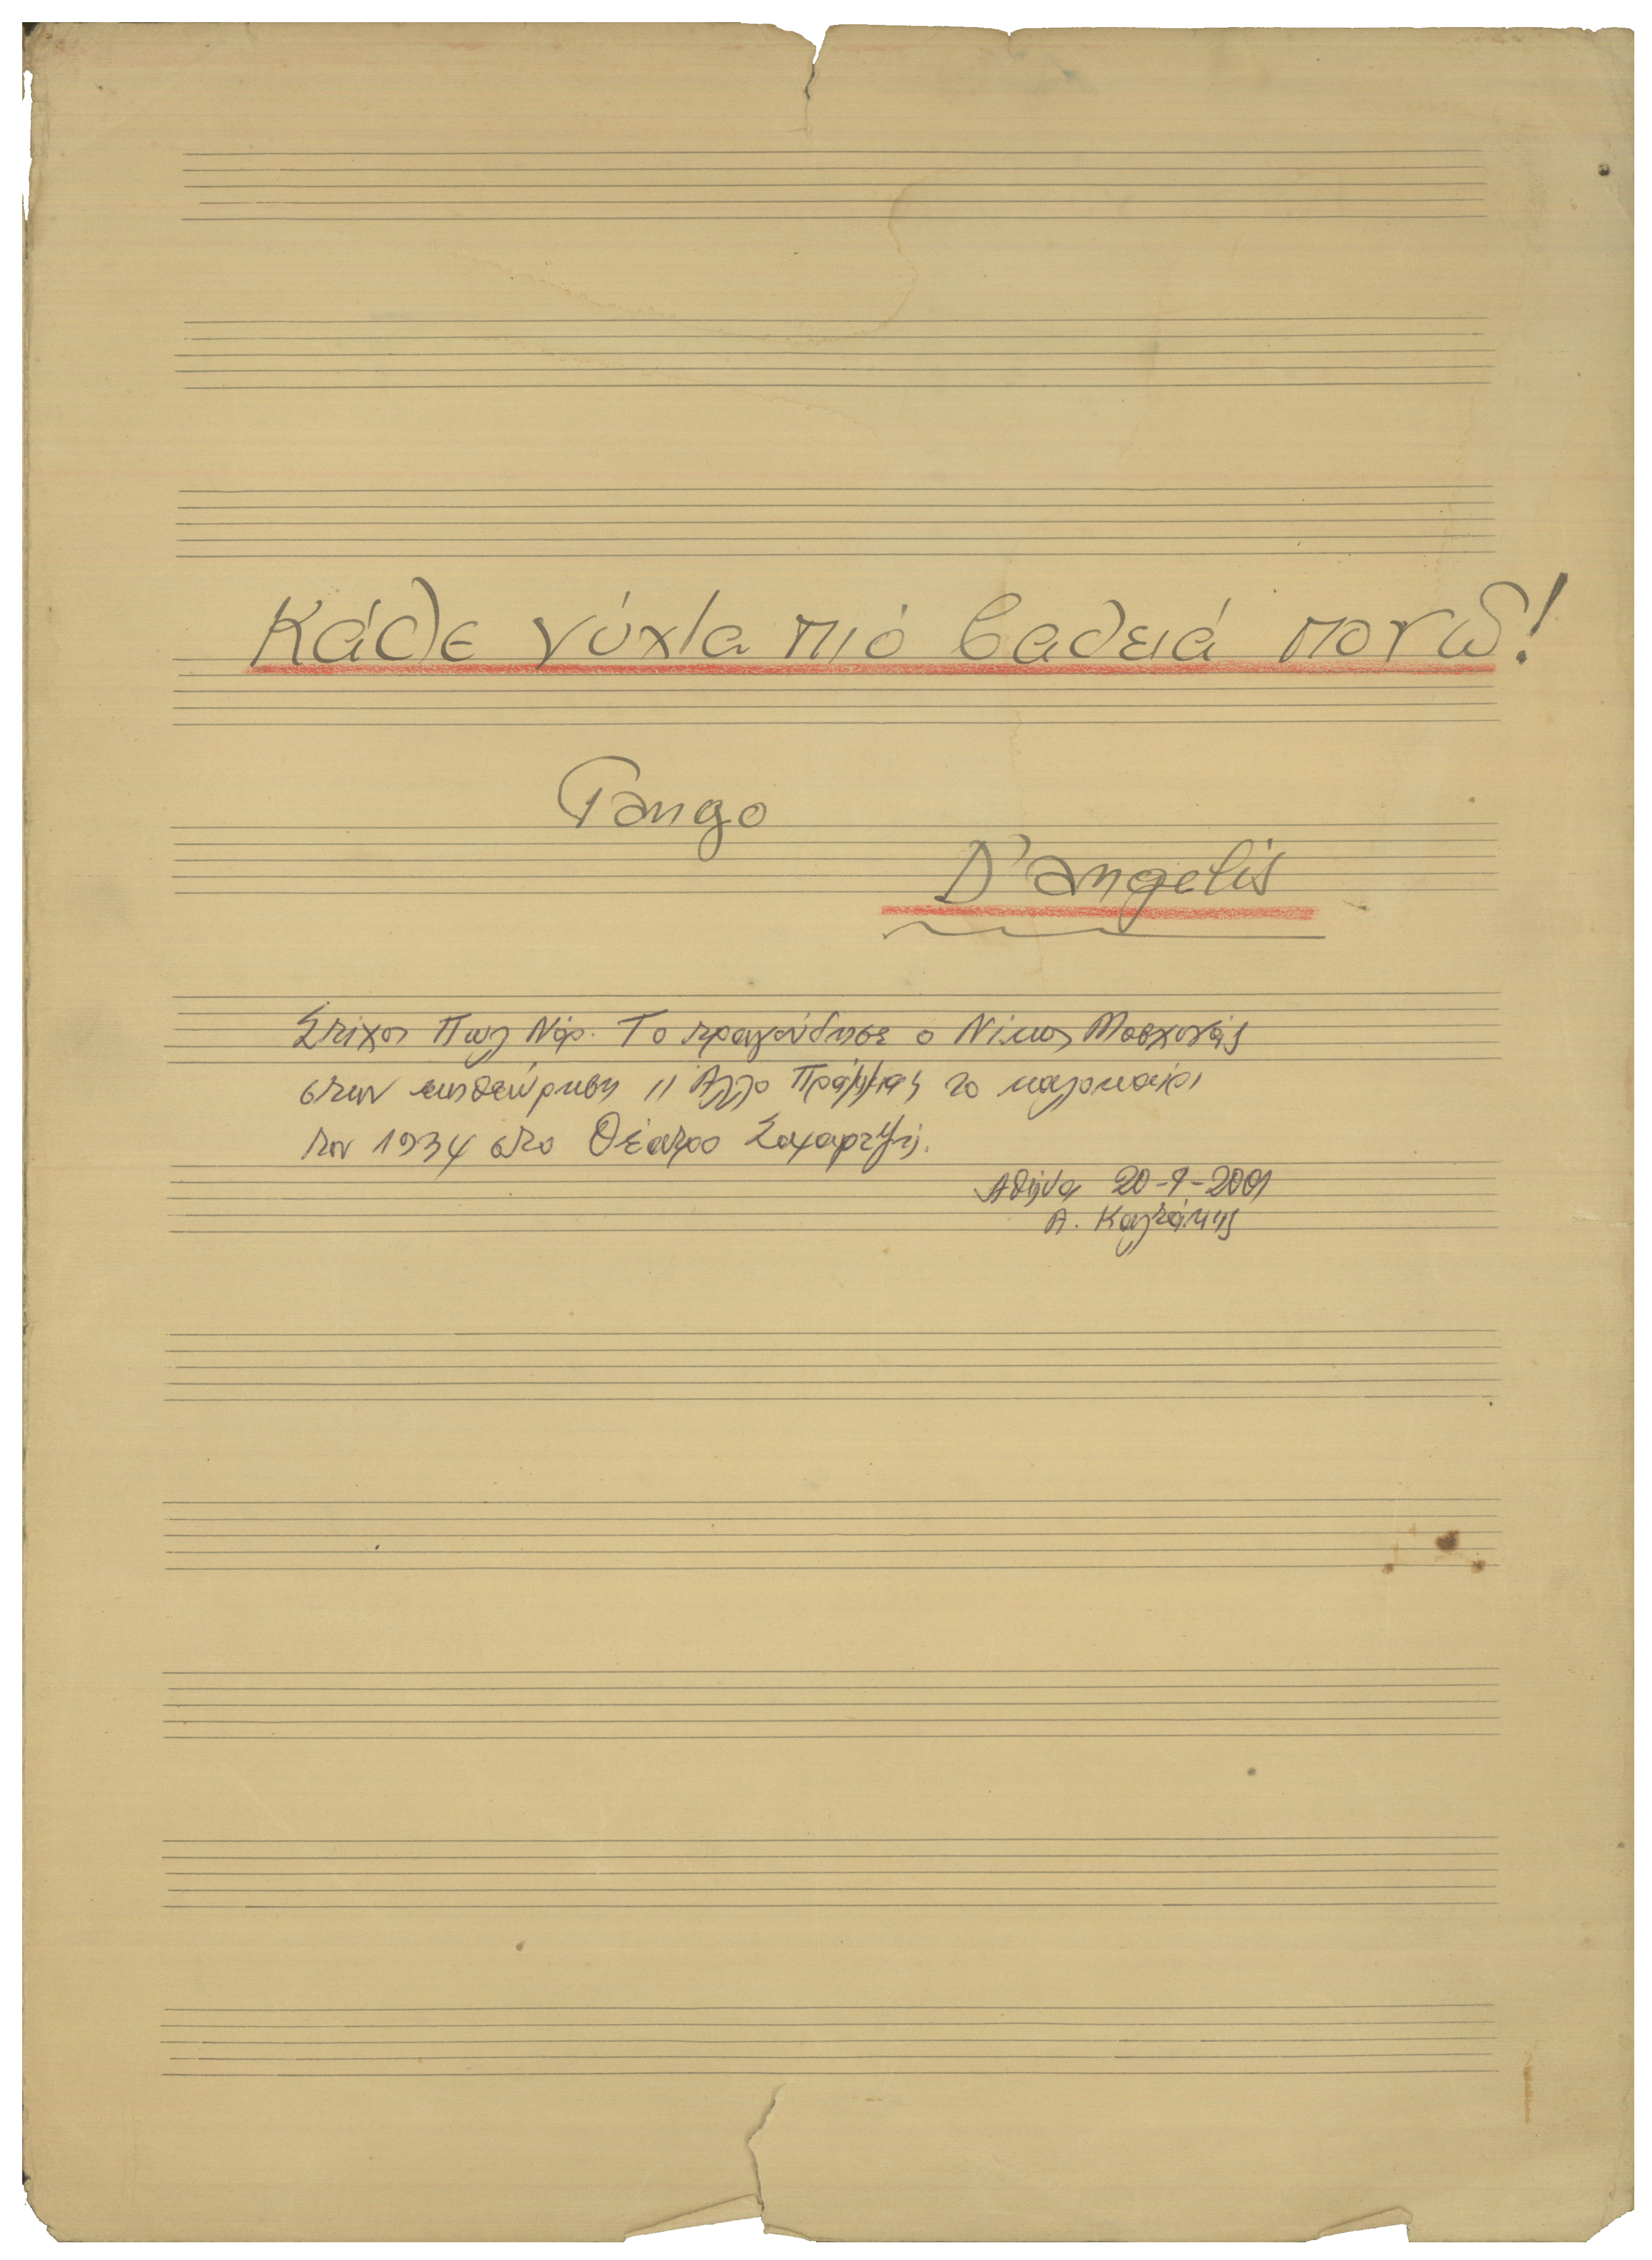 Κάθε νύχτα πιό βαθειά πονῶ!
Tango
D'angelis
Στίχοι Πωλ Νορ. Το τραγούδησε ο Νίκος Μοσχονάς
στην επιθεώρηση Άλλο Πράμμα το καλοκαίρι
του 1934 στο Θέατρο Σαμαρτζή.
Αθήνα 20-9-2001
Α. Καλτάκης